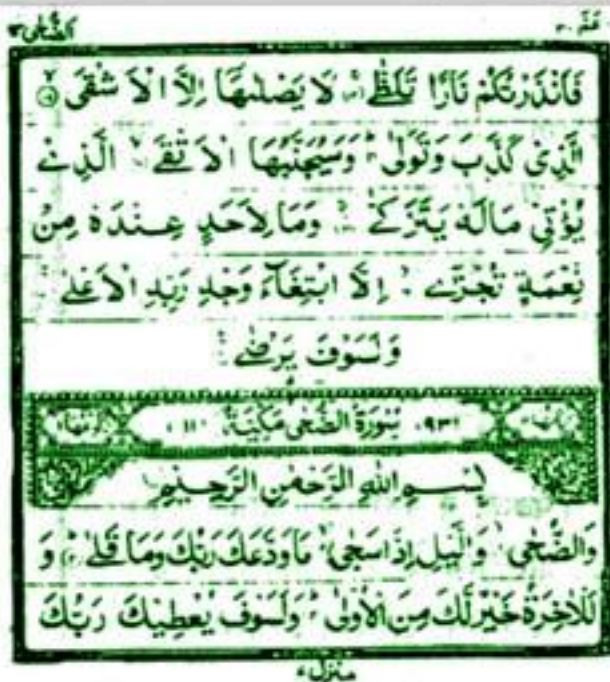 عَمَّ ٣٠ الضُّحٰى ٩٣
فَاَنْذَرْتُكُمْ نَارًا تَلَظّٰى ۚ لَا يَصْلٰىهَا اِلَّا الْاَشْقَى ۙ
الَّذِىْ كَذَّبَ وَتَوَلّٰى ؕ وَسَيُجَنَّبُهَا الْاَتْقَى ۙ الَّذِىْ
يُؤْتِىْ مَالَهٗ يَتَزَكّٰى ۚ وَمَا لِاَحَدٍ عِنْدَهٗ مِنْ
نِّعْمَةٍ تُجْزٰٓى ۙ اِلَّا ابْتِغَآءَ وَجْهِ رَبِّهِ الْاَعْلٰى ۚ
وَلَسَوْفَ يَرْضٰى
(٩٣) سُوْرَةُ الضُّحٰى مَكِّيَّةٌ (١١)
بِسْمِ اللّٰهِ الرَّحْمٰنِ الرَّحِيْمِ
وَالضُّحٰى ۙ وَالَّيْلِ اِذَا سَجٰى ۙ مَا وَدَّعَكَ رَبُّكَ وَمَا قَلٰى ؕ وَ
لَلْاٰخِرَةُ خَيْرٌ لَّكَ مِنَ الْاُوْلٰى ؕ وَلَسَوْفَ يُعْطِيْكَ رَبُّكَ
منزل ٧